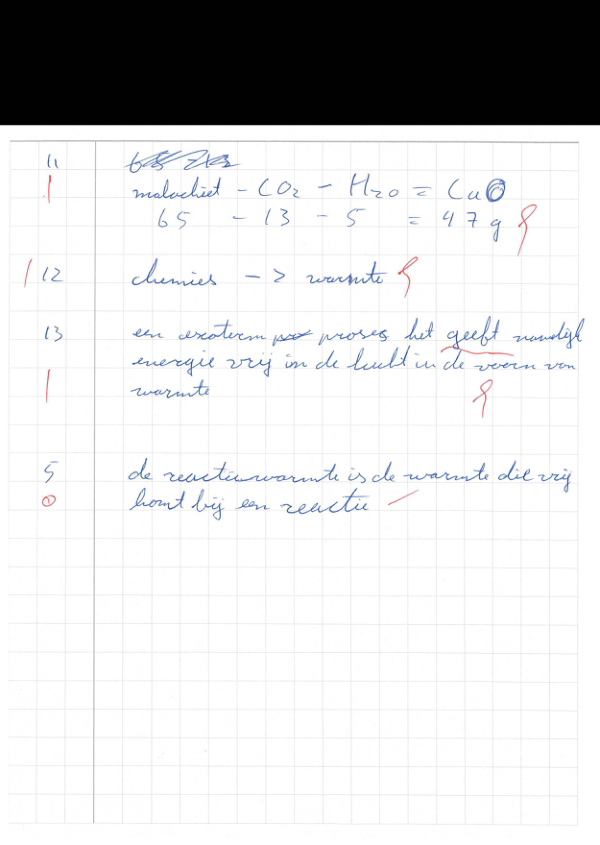 11
malachiet - CO2 - H2O = CuO
1
65 - 13 - 5 = 47 g
1 12 chemies -> warmte
13 een exoterm proses het geeft namelijk
energie vrij in de lucht in de voorm van
1 warmte
5 de reactiewarmte is de warmte die vrij
0 komt bij een reactie